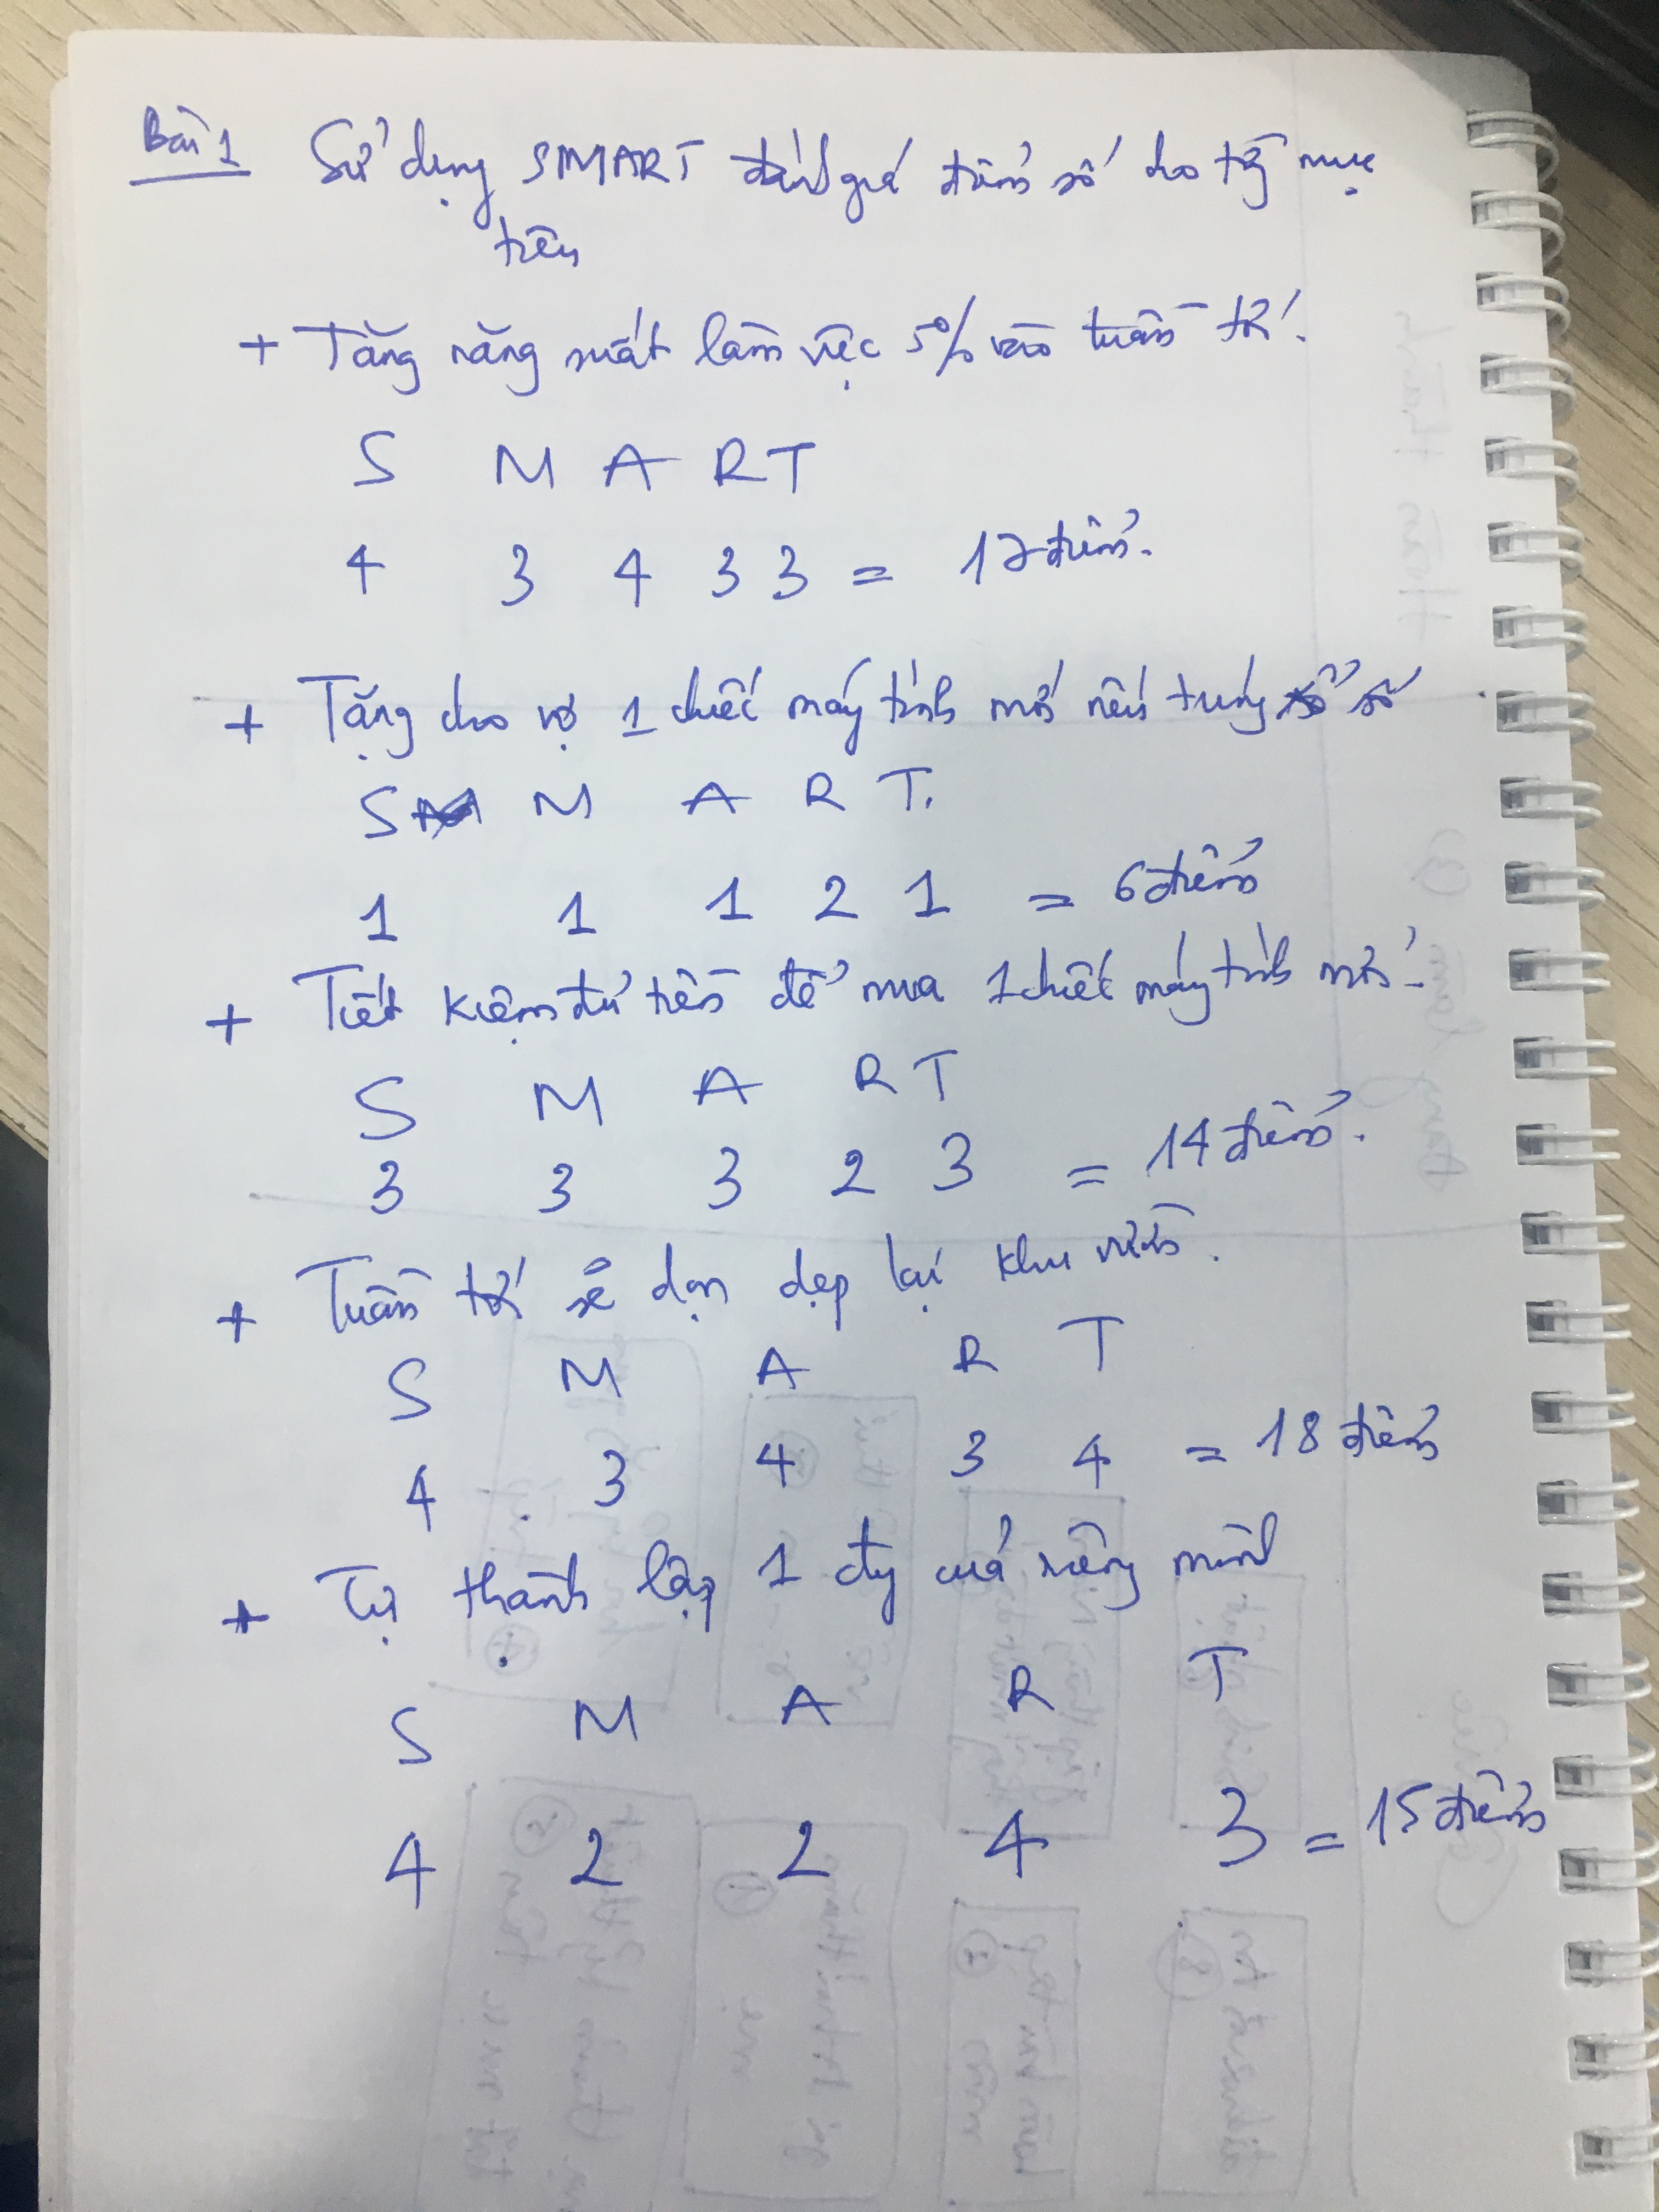 Bài 1 Sử dụng SMART đánh giá điểm số cho từng mục
tiêu
+ Tăng năng suất làm việc 5% vào tuần tới.
S M A R T
4 3 4 3 3 = 17 điểm.
+ Tặng cho vợ 1 chiếc máy tính mới nếu trúng số
S M A R T.
1 1 1 2 1 = 6 điểm
+ Tiết kiệm đủ tiền để mua 1 chiếc máy tính mới.
S M A R T
3 3 3 2 3 = 14 điểm.
+ Tuần tới sẽ dọn dẹp lại khu vườn.
S M A R T
4 3 4 3 4 = 18 điểm
+ Tự thành lập 1 cty của riêng mình
S M A R T
4 2 2 4 3 = 15 điểm